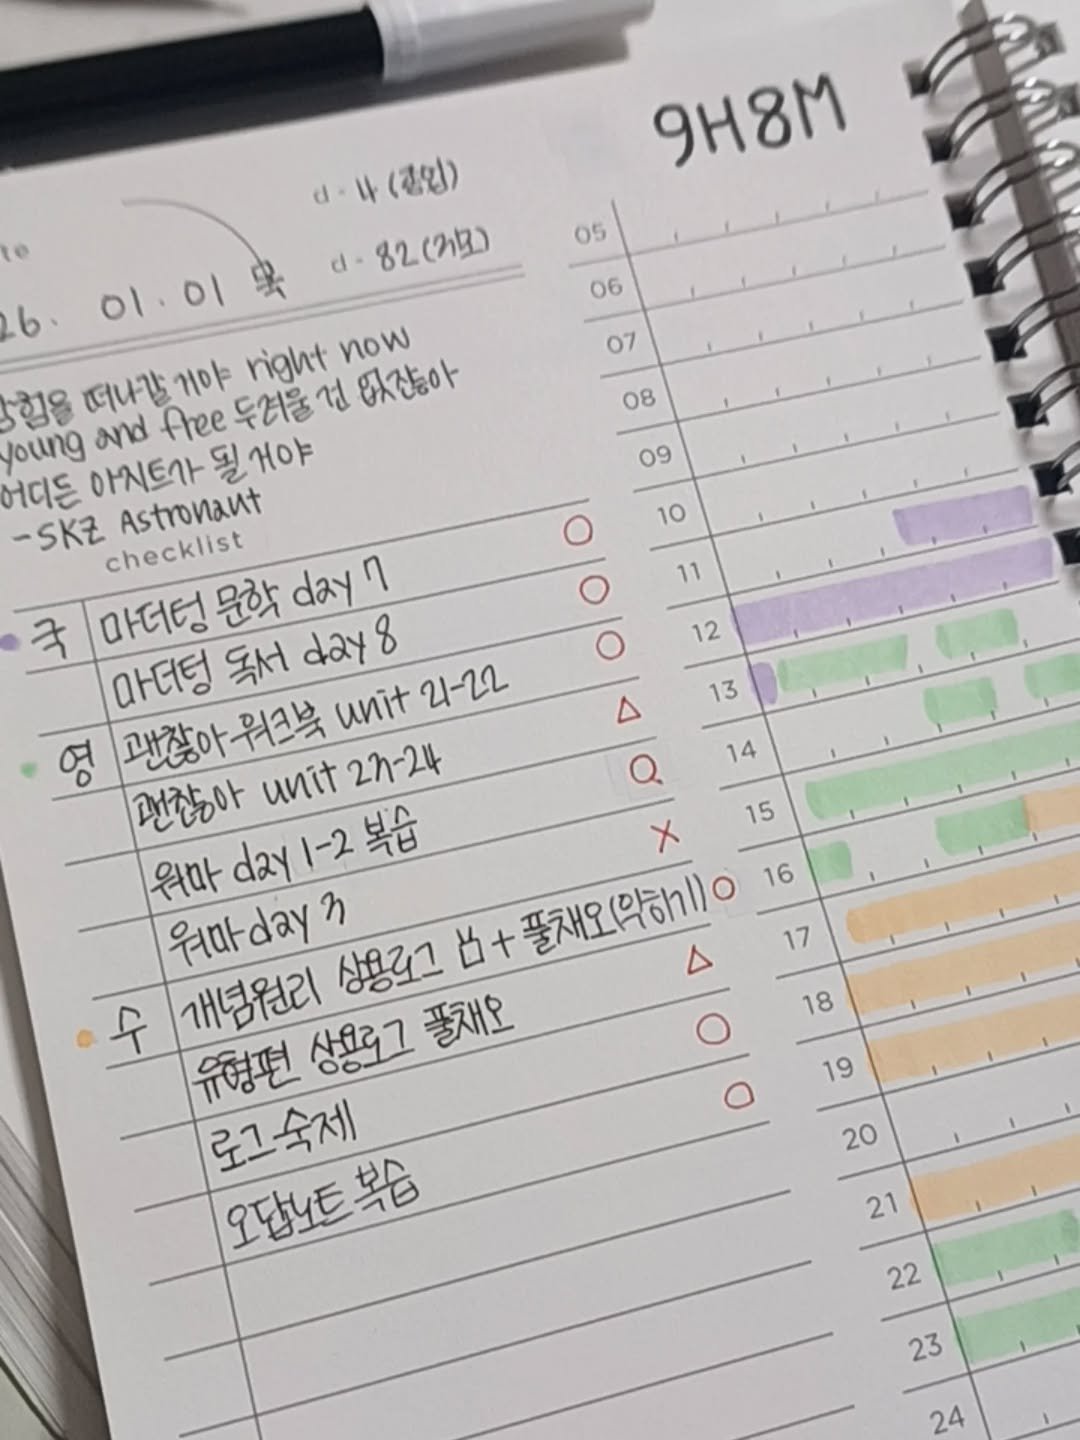 9H8M
d-4 (콤입)
d-82 (3모)
26. 01. 01 목
떠나갈 거야 right now
young and free 두려울 건 없잖아
어디든 아지트가 될 거야
-SKZ Astronaut
checklist
국 마더텅 문학 day 7 ○
마더텅 독서 day 8 ○
영 괜찮아 워크북 unit 21-22 ○
괜찮아 unit 23-24 △
워마 day 1-2 복습 O
워마 day 3 X
수 개념원리 상용로그 + 풀채오(약하기) ○
유형편 상용로그 풀채오 △
로그 숙제 ○
오답노트 복습 ○
05
06
07
08
09
10
11
12
13
14
15
16
17
18
19
20
21
22
23
24